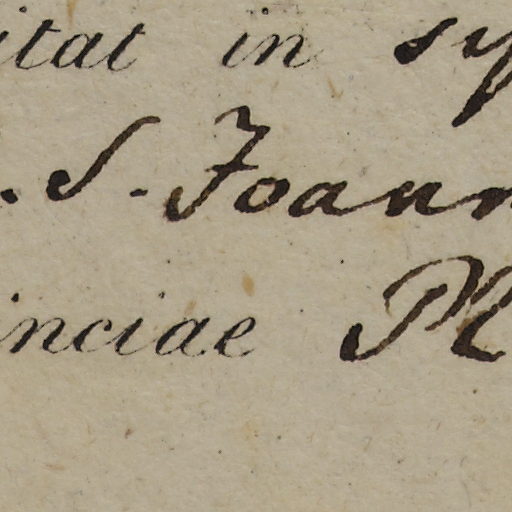 itat in sy
. S. Joann
inciae Pl